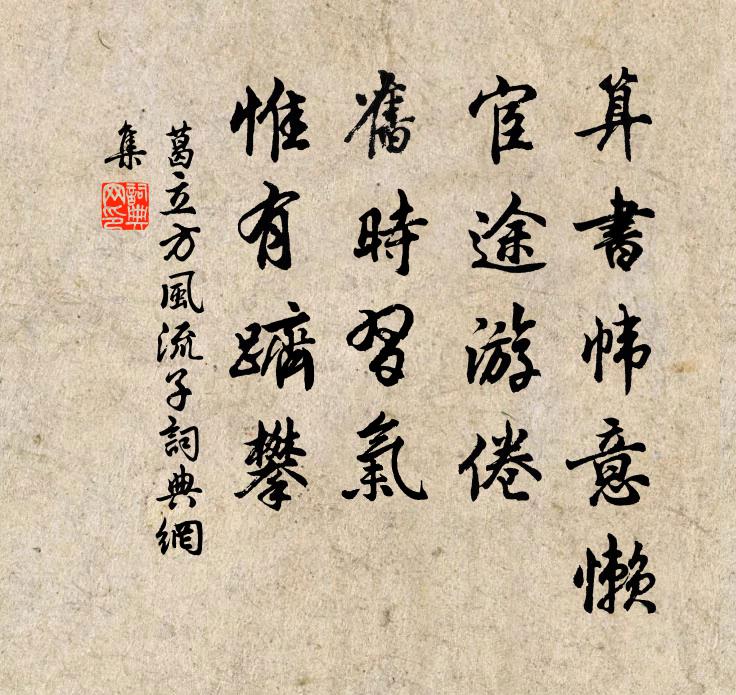 算書幃意懶
宦途游倦
舊時習氣
惟有躋攀
葛立方風流子詞典網
集
詞典
网印